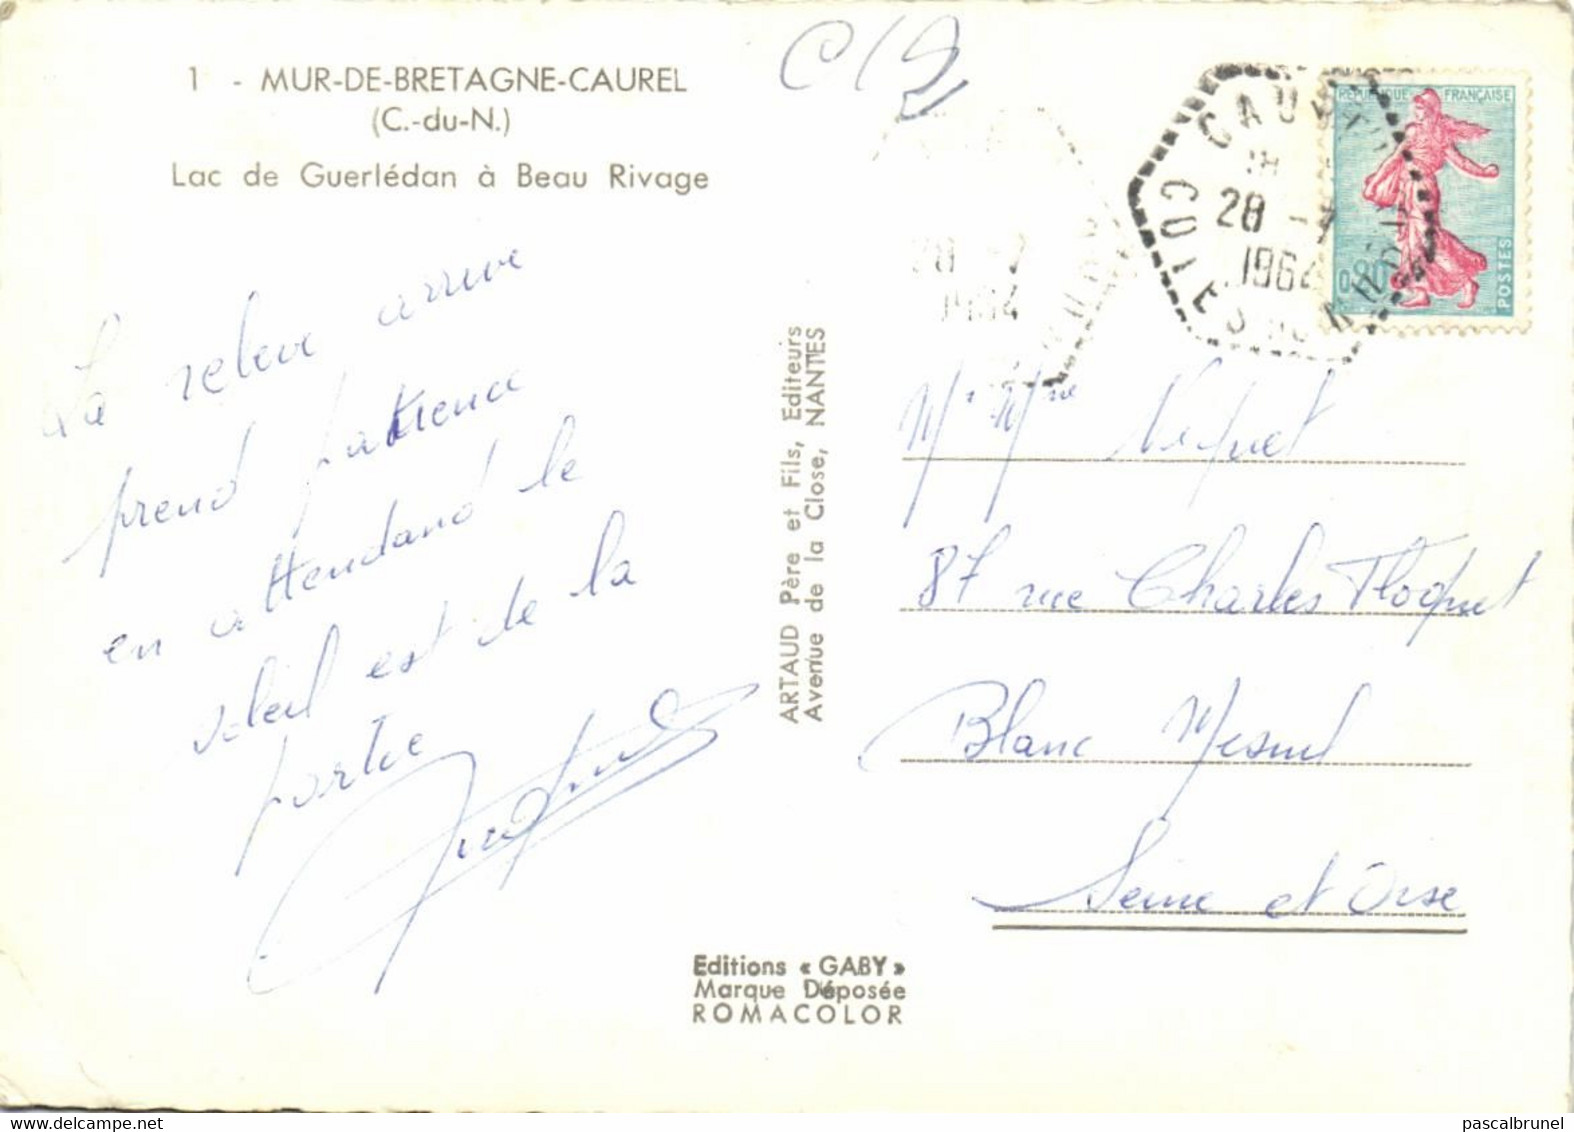 1 - MUR-DE-BRETAGNE-CAUREL
(C.-du-N.)
Lac de Guerlédan à Beau Rivage
La releve arrive
prend patience
en attendand le
soleil est de la
partie
ARTAUD Père et Fils, Editeurs
Avenue de la Close, NANTES
Editions « GABY »
Marque Déposée
ROMACOLOR
28 -7
1964
CAUREL
18
28 -7
1964
COTES DU NORD
REPUBLIQUE FRANÇAISE
0,20
POSTES
Mr Mme
87 rue Charles Floquet
Blanc Mesnil
Seine et Oise
pascalbrunel